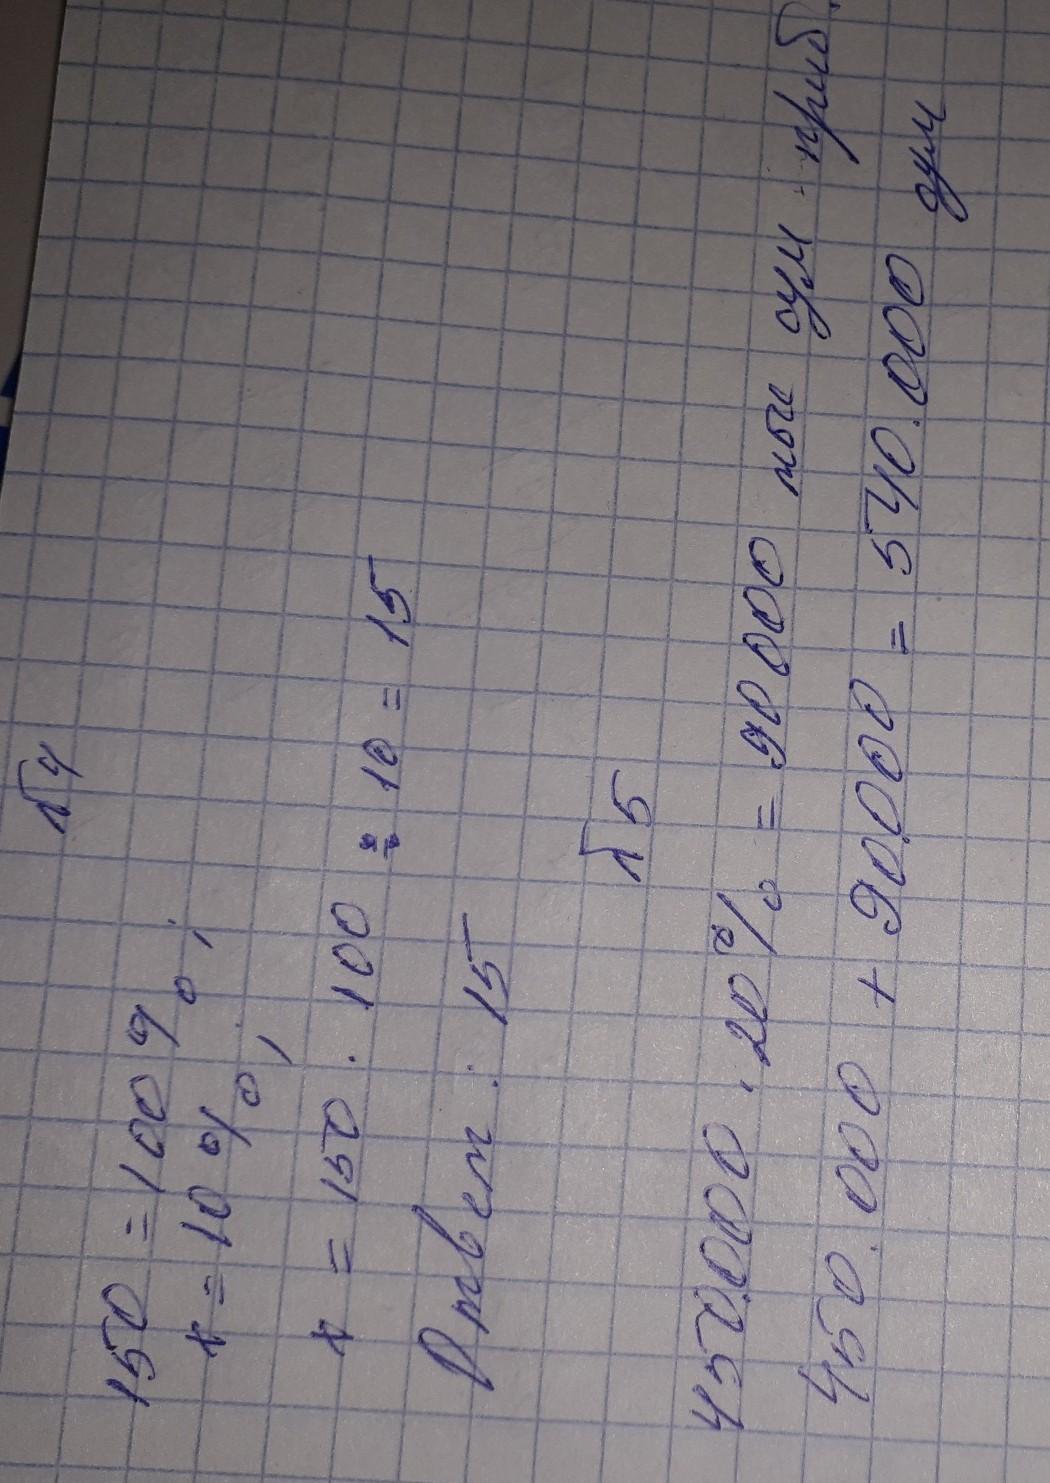 №4
150 = 100%;
x = 10%;
x = 150 · 100 · 10 = 15
Ответ: 15
№5
450.000 · 20% = 90000 сум приб.
450.000 + 90.000 = 540.000 сум